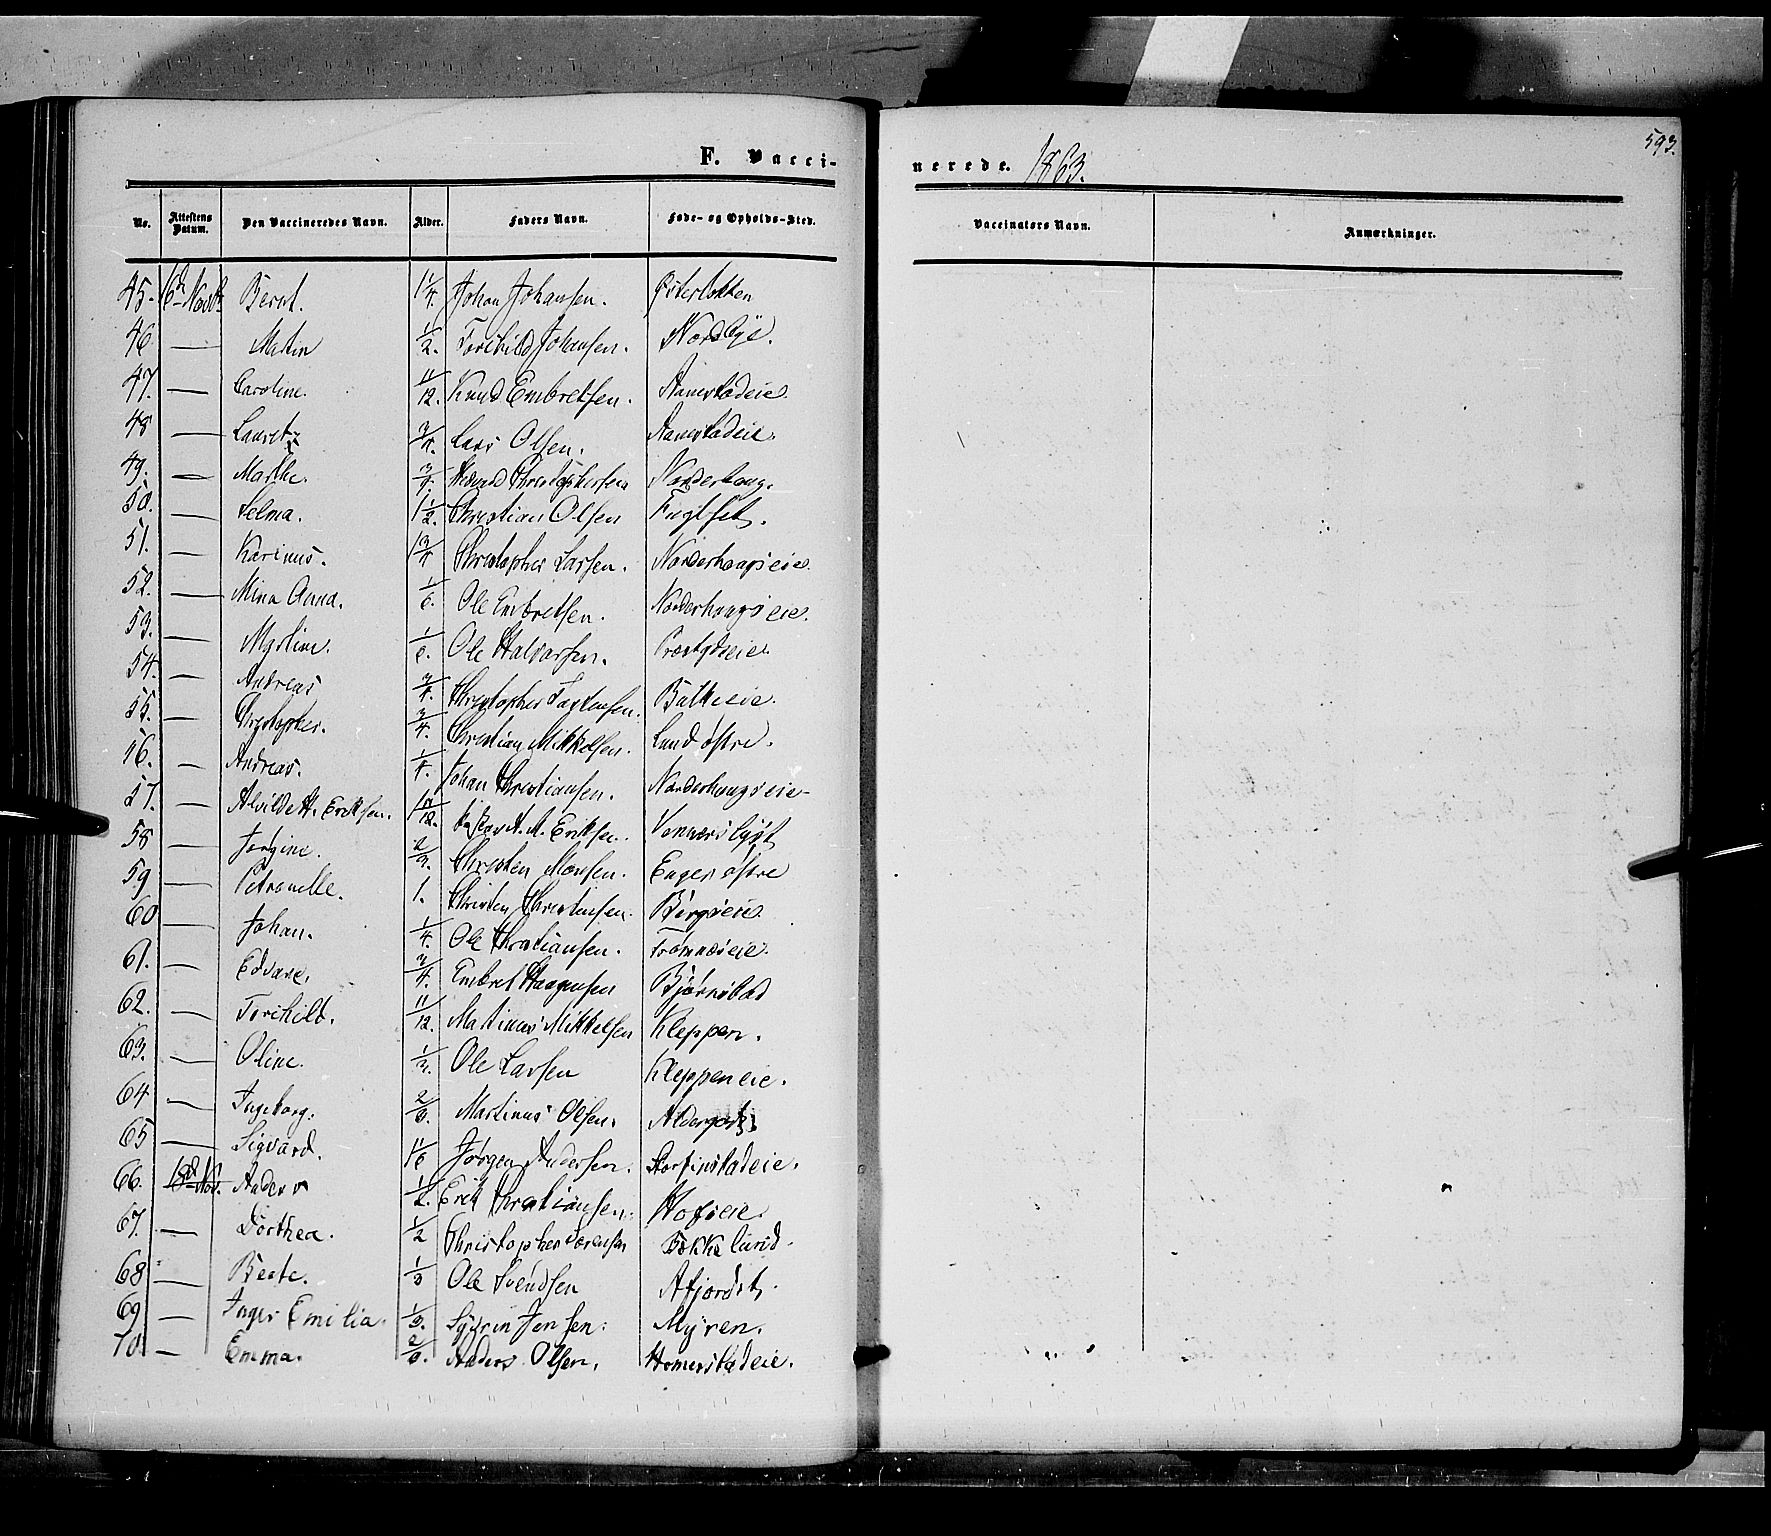 593.
F. Vaccinerede. 1863.
No. Attestens Datum. Den Vaccineredes Navn. Alder. Faders Navn. Føde- og Opholds-Sted. Vaccinators Navn. Anmærkninger.
45. 6d Novbr Bernt. 1 1/4. Johan Johansen. Østerlokken
46 — Matin 1/2. Torchild Johansen. Nordbye.
47. — Caroline. 11/12. Knud Embretsen. Stamerladeie.
48 — Lauretz 3/4. Lars Olsen.
49. — Marthe. 3/4. Christophersen Norderhaug.
50. — Selma. 1 1/2. Christian Olsen Fuglset.
51. — Karinus. 1 3/4 Christopher Larsen. Norderhaugseie.
52. — Mina Anna. 1/6. Ole Embretsen. Norderhaugseie.
53. — Martine. 1/6. Ole Halvorsen. Præstgdseie.
54. — Andreas 3/4. Christopher
55. — Christopher. 3/4. Christian Mikkelsen. Lund østre.
56. — Andreas. 1/4 Johan Christiansen. Norderhaugseie
57. — Alvilde H. Eriksen. 1 11/12. A. M. Eriksen. Vennerslyst
58 — Jørgine. 2/3. Christen Monsen. Enger østre
59 — Petronelle. 1. Christen Christensen. Bergseie.
60 — Johan. 1/4. Ole Christiansen.
61. — Edvard. 3/4. Embret Haagensen Bjørnstad
62. — Torchild. 11/12. Matinus Mikkelsen Kleppen.
63. — Oline. 1/3. Ole Larsen Kleppeneie.
64 — Ingeborg. 2/3. Martinus Olsen.
65 — Sigvard. 1 1/6 Jørgen Andersen.
66. 12d Nov. Anders 1/2. Erik Christiansen. Hofseie.
67. — Dorthea. 1/2 Christopher Sørensen Bækkelund.
68 — Beate. 1/3 Ole Svendsen
69 — Inger Emilia. 1/3. Syvrin Jensen. Myren.
70. — Emma. 2/3. Anders Olsen. Homerstadeie.